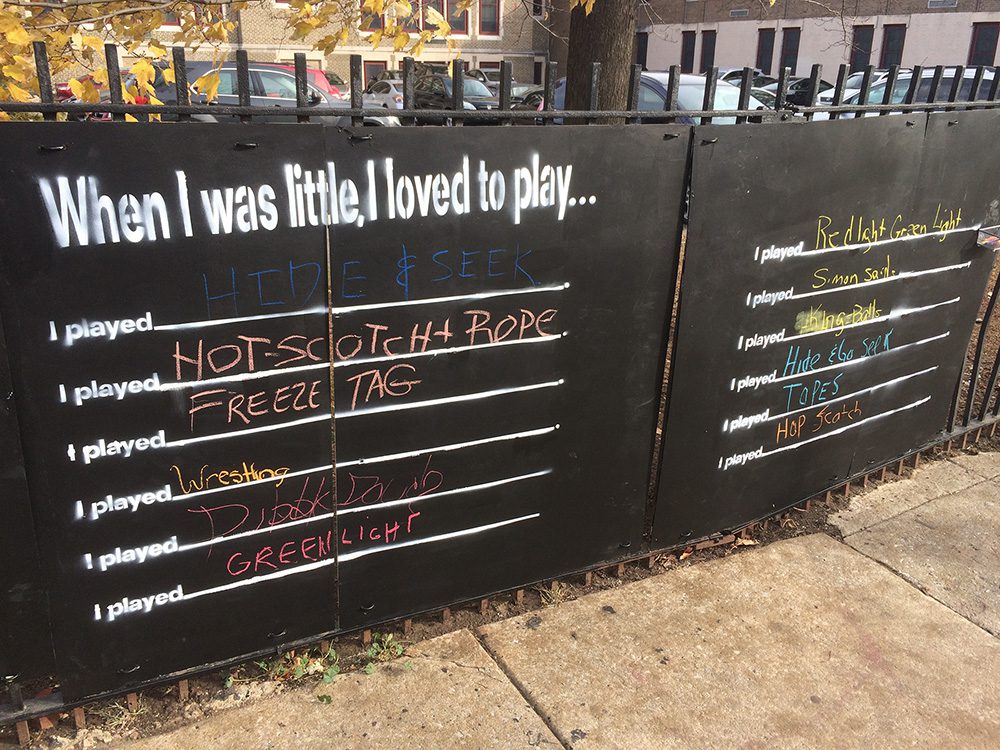 When I was little, I loved to play...
I played HIDE & SEEK
I played HOT-SCOTCH + ROPE
I played FREEZE TAG
I played Wrestling
I played
I played GREEN LIGHT
I played Red light Green Light
I played Simon said.
I played King-Balls
I played Hide &Go SeeK
I played TOPES
I played HOP Scotch